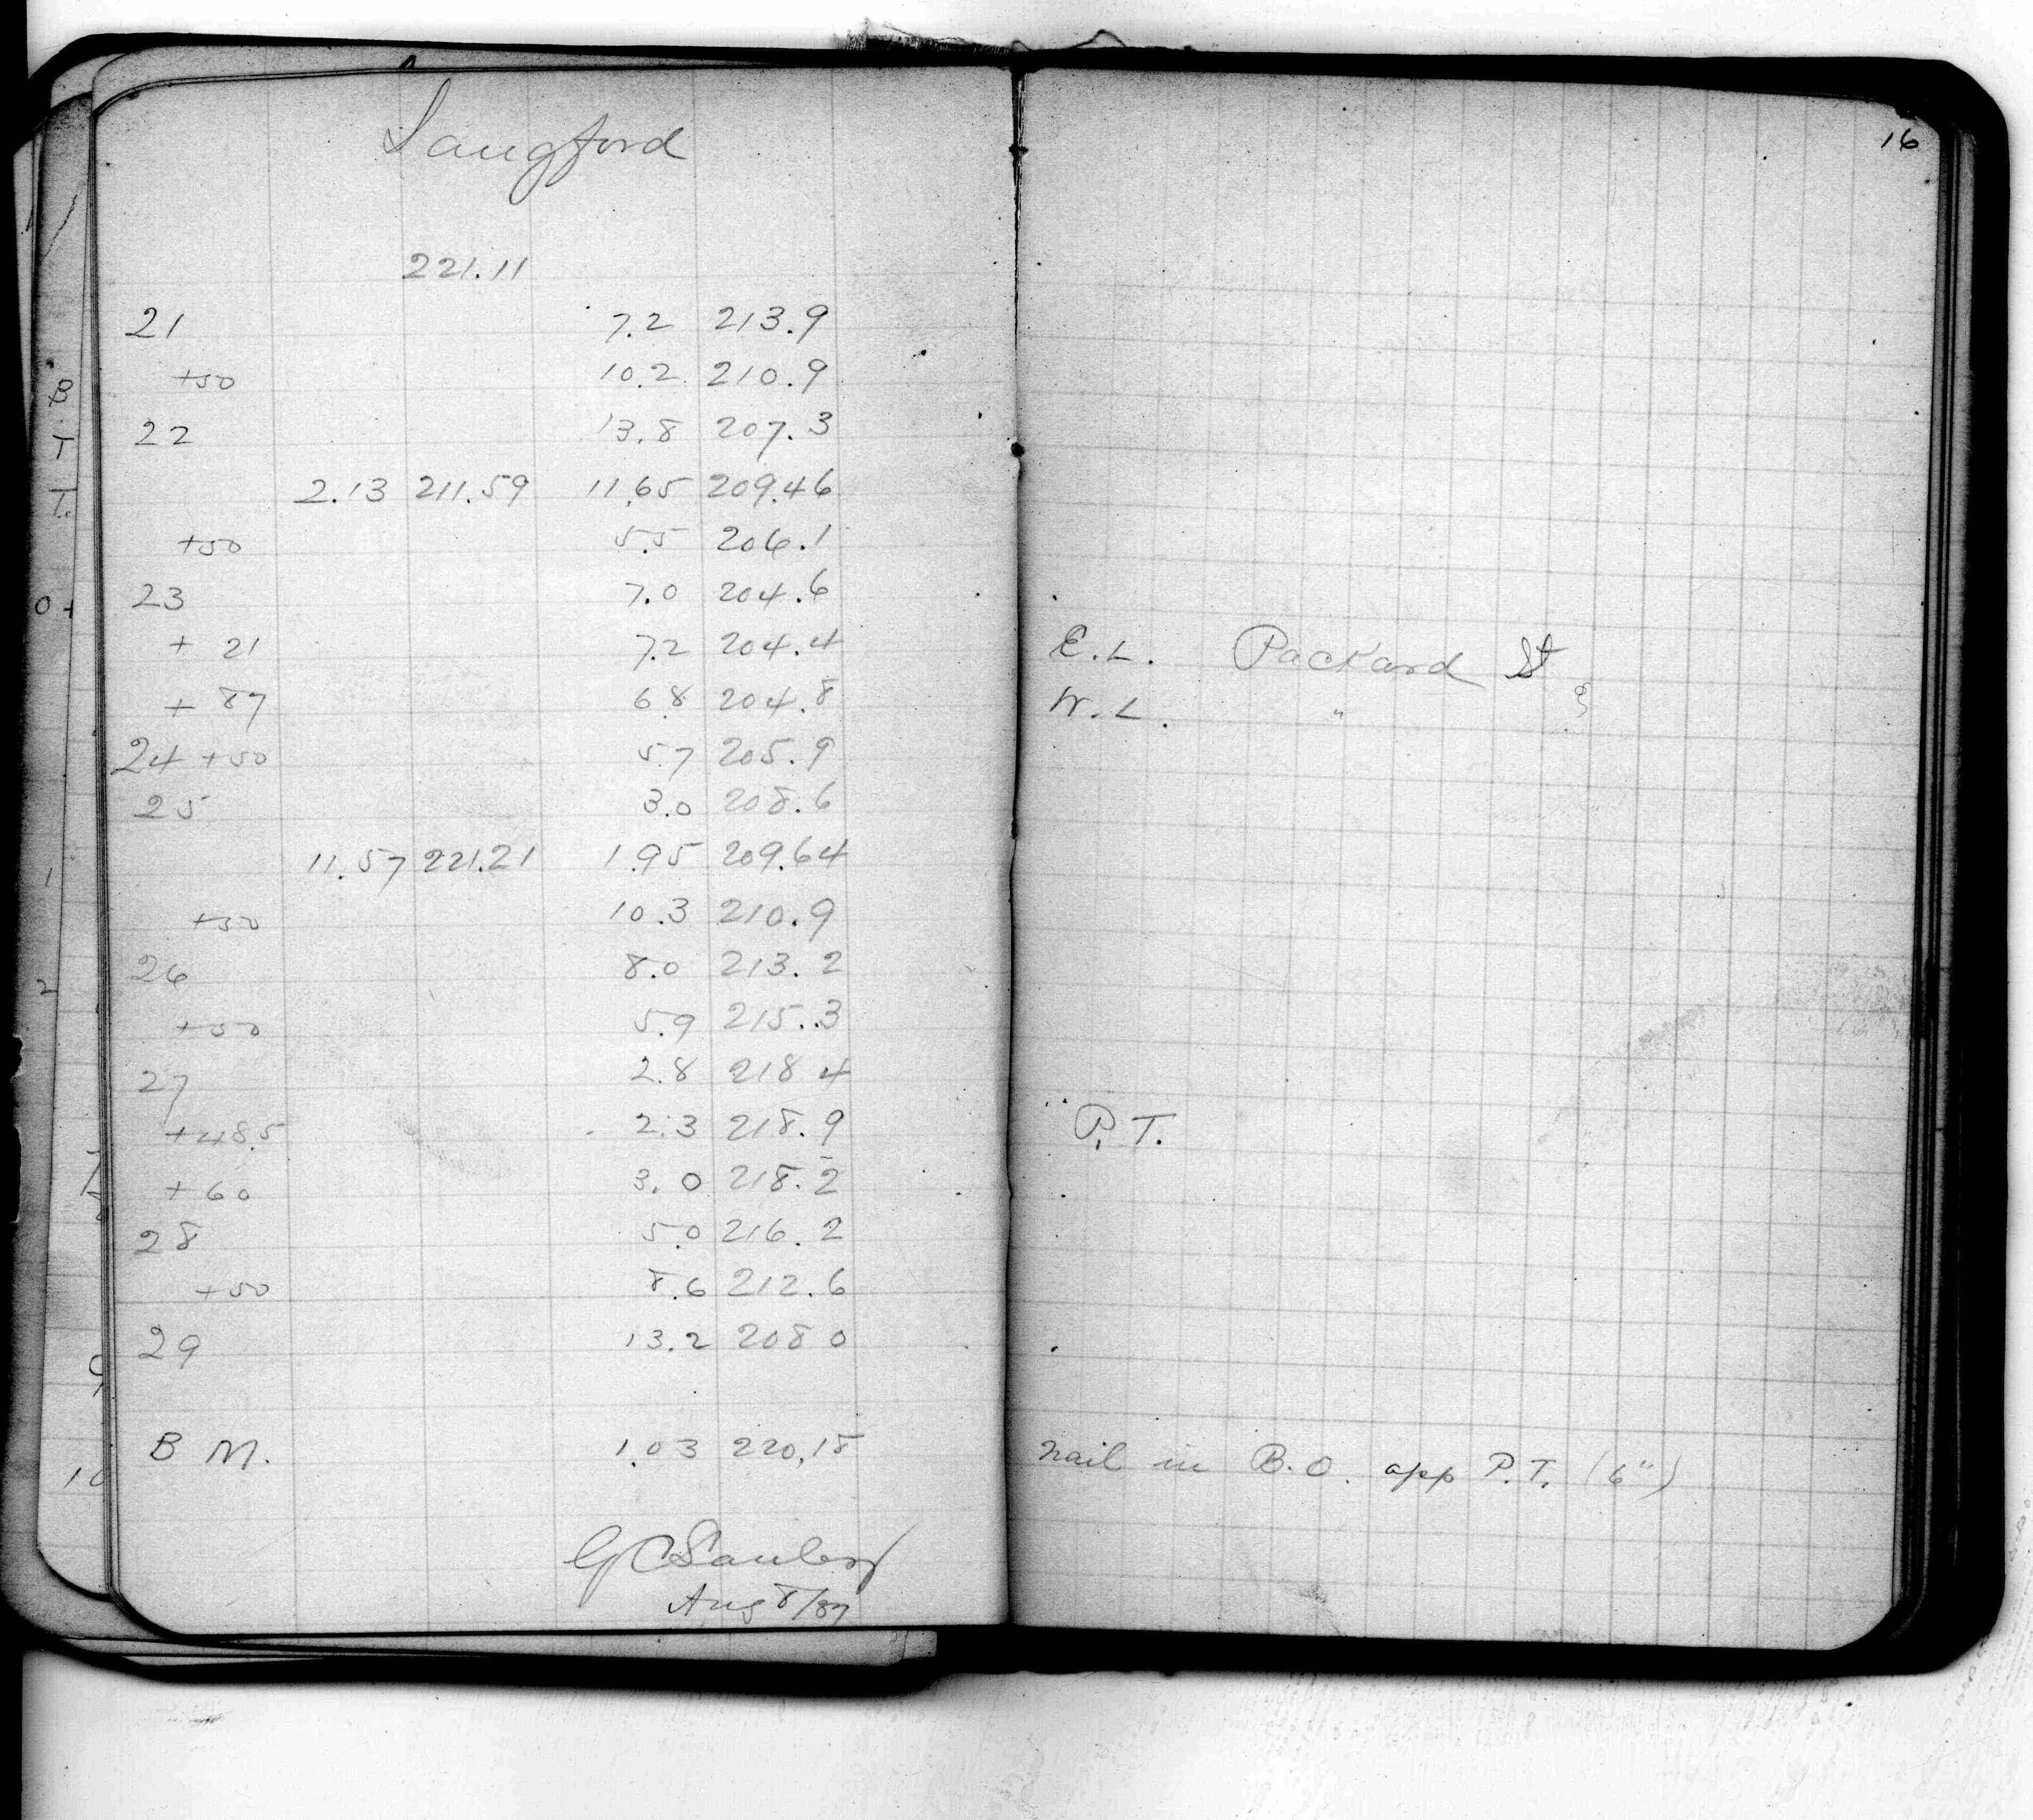 Langford
16
221.11
21 7.2 213.9
+50 10.2 210.9
22 13.8 207.3
2.13 211.59 11.65 209.46
+50 5.5 206.1
23 7.0 204.6
+ 21 7.2 204.4 E.L. Packard St
+ 87 6.8 204.8 W.L. "
24 +50 5.7 205.9
25 3.0 208.6
11.57 221.21 1.95 209.64
+50 10.3 210.9
26 8.0 213.2
+50 5.9 215.3
27 2.8 218 4
+48.5 2.3 218.9 P.T.
+ 60 3.0 218.2
28 5.0 216.2
+50 8.6 212.6
29 13.2 208 0
B M. 1.03 220.18 nail in B.O. opp P.T. (6")
Aug 8/87